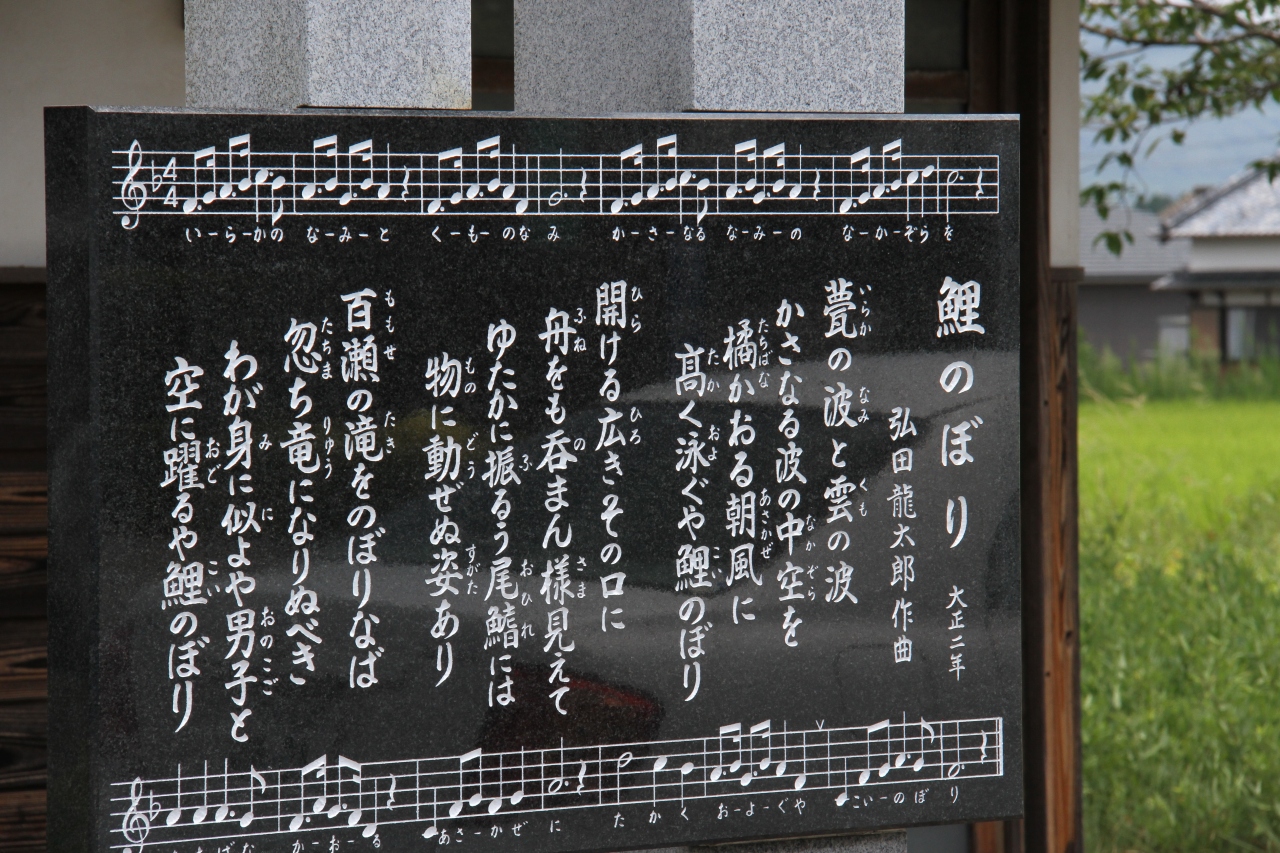 い－ら－かの な－み－と く－も－のな み か－さ－なる な－み－の な－か－ぞら を
鯉のぼり 大正二年
弘田龍太郎作曲
甍の波と雲の波
いらか なみ くも
かさなる波の中空を
なかぞら
橘かおる朝風に
たちばな あさかぜ
高く泳ぐや鯉のぼり
たか およ こい
開ける広きその口に
ひら ひろ
舟をも呑まん様見えて
ふね の さま
ゆたかに振るう尾鰭には
ふ おひれ
物に動ぜぬ姿あり
もの どう すがた
百瀬の滝をのぼりなば
ももせ たき
忽ち竜になりぬべき
たちま りゆう
わが身に似よや男子と
み に おのこご
空に躍るや鯉のぼり
おど こい
ちばな か－お－る あさ－かぜ に た か く お－よ－ぐや こい－のぼ り